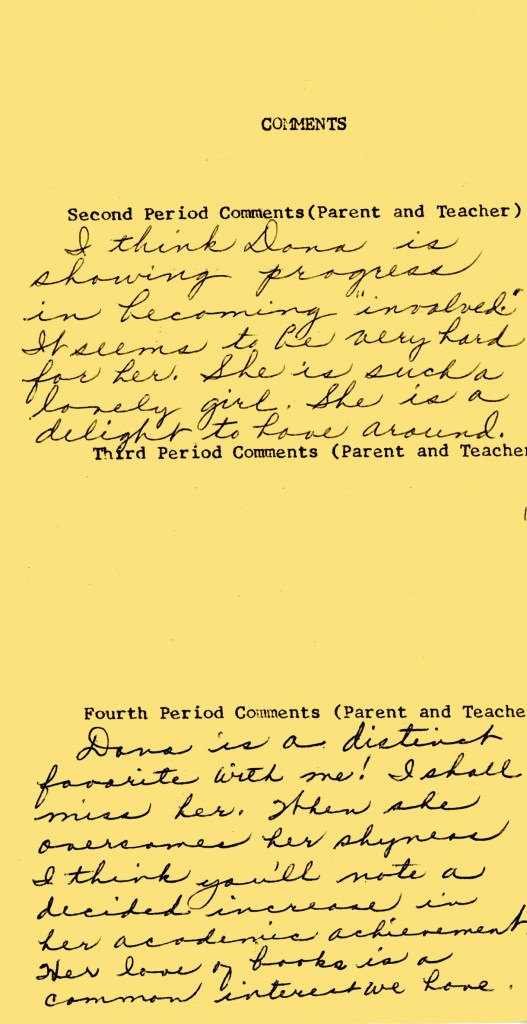 COMMENTS
Second Period Comments(Parent and Teacher)
I think Dona is
showing progress
in becoming "involved."
It seems to be very hard
for her. She is such a
lovely girl. She is a
delight to have around.
Third Period Comments (Parent and Teacher
Fourth Period Comments (Parent and Teache
Dona is a distinct
favorite with me! I shall
miss her. When she
overcomes her shyness
I think you'll note a
decided increase in
her academic achievement.
Her love of books is a
common interest we have.